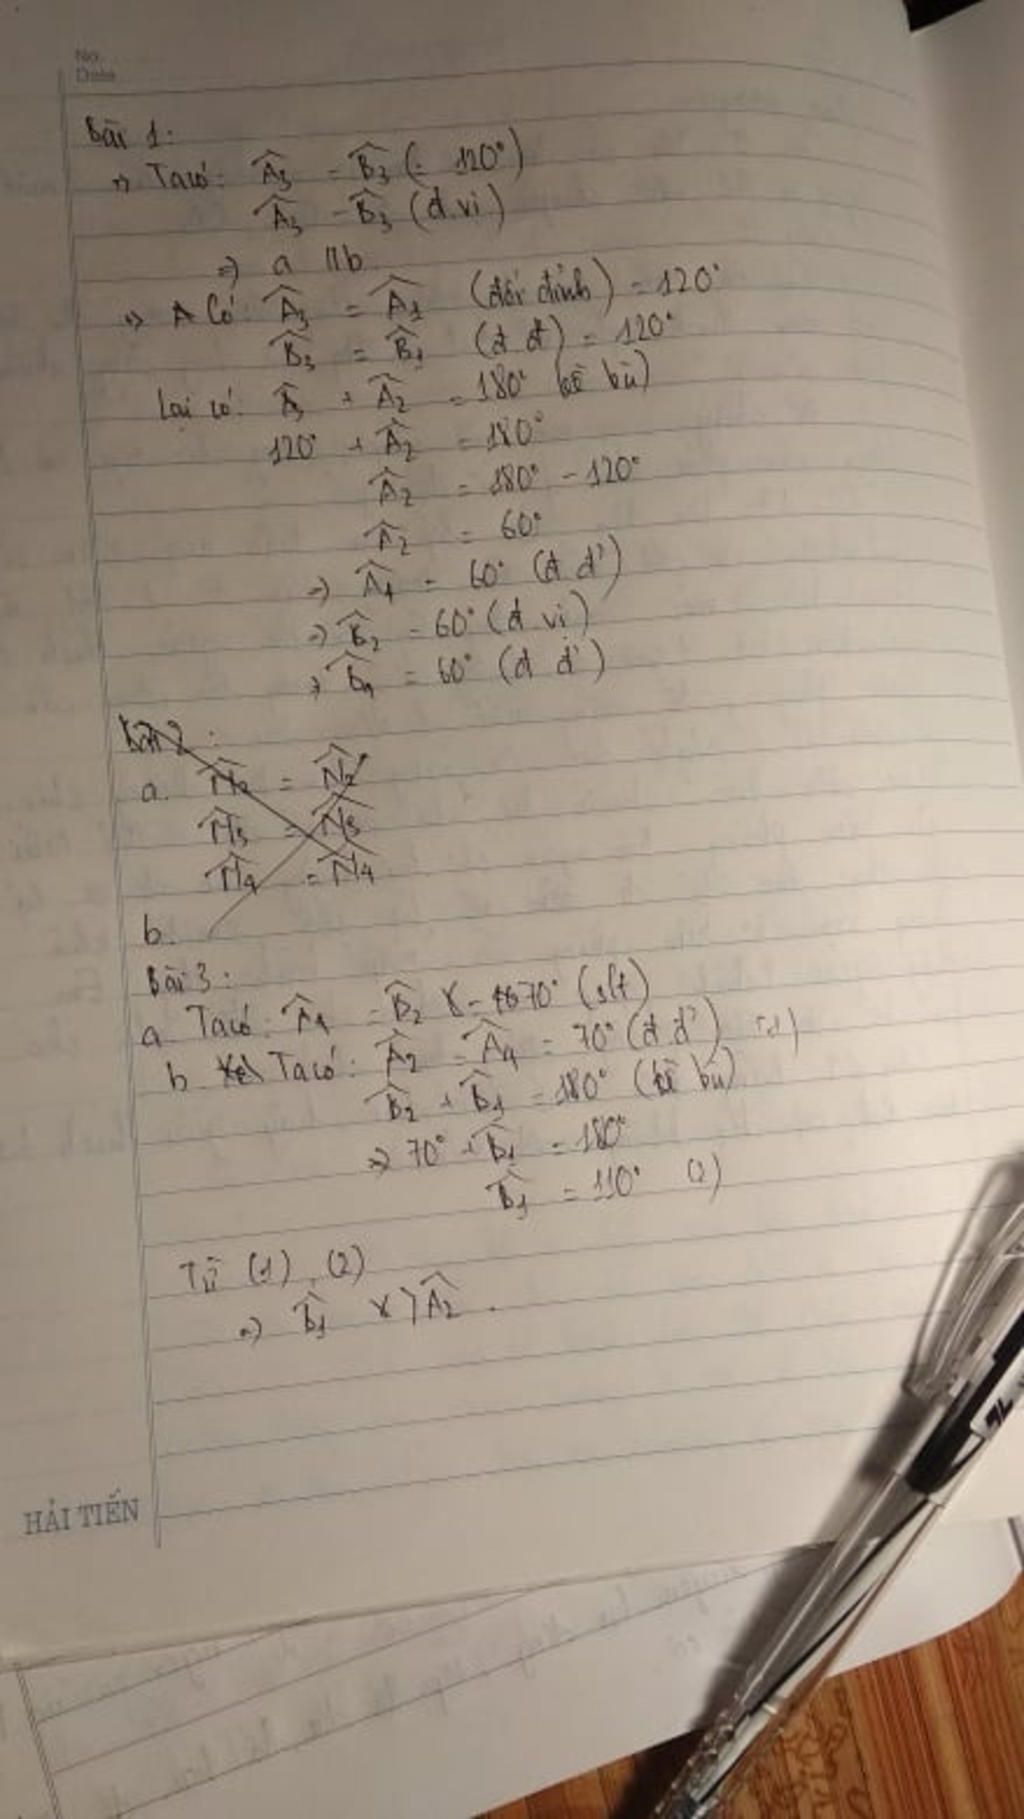 No.
Date
Bài 1:
=> Ta có: Â₃ = B̂₃ (= 120°)
Â₃ - B̂₃ (đ.vi)
=> a // b
=> Có: Â₃ = Â₁ (đối đỉnh) = 120°
B̂₃ = B̂₁ (đ đ) = 120°
Lại có: Â₃ + Â₂ = 180° (kề bù)
120° + Â₂ = 180°
Â₂ = 180° - 120°
Â₂ = 60°
=> Â₄ = 60° (đ đ')
=> B̂₂ = 60° (đ vi)
=> B̂₄ = 60° (đ đ')
Bài 2:
a. M̂₂ = N̂₂
M̂₃ = N̂₃
M̂₄ = N̂₄
b.
Bài 3:
a Ta có: Â₄ = B̂₂ = 70° (slt)
b Ta có: Â₂ = Â₄ = 70° (đ đ') (1)
B̂₂ + B̂₁ = 180° (kề bù)
=> 70° + B̂₁ = 180°
B̂₁ = 110° (2)
Từ (1), (2)
=> B̂₁ > Â₂.
HẢI TIẾN